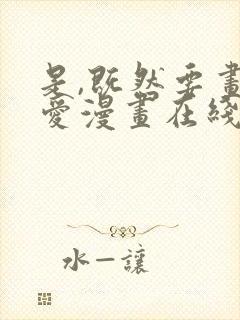 是,既然要畫
愛漫畫在綫
水一讓